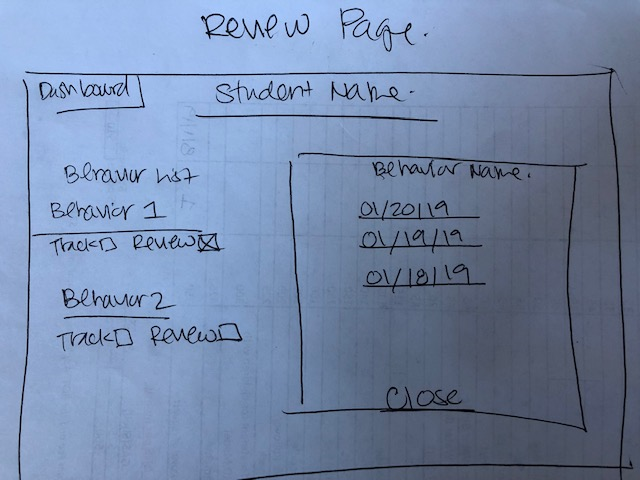 Review Page.
Dashboard
Student Name.
Behavior List
Behavior 1
Track Review
Behavior 2
Track Review
Behavior Name.
01/20/19
01/19/19
01/18/19
Close